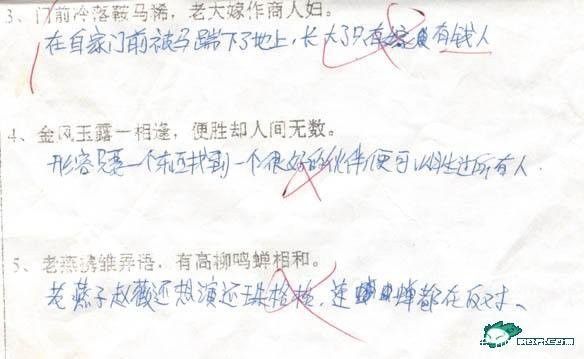 3、门前冷落鞍马稀，老大嫁作商人妇。
在自家门前被马踹下了地上，长大了只有嫁有钱人
4、金风玉露一相逢，便胜却人间无数。
形容只要一个东西找到一个很好的伙伴便可以胜过所有人.
5、老燕携雏弄语，有高柳鸣蝉相和。
老燕子赵薇还想演还珠格格，连蝉都在反对.